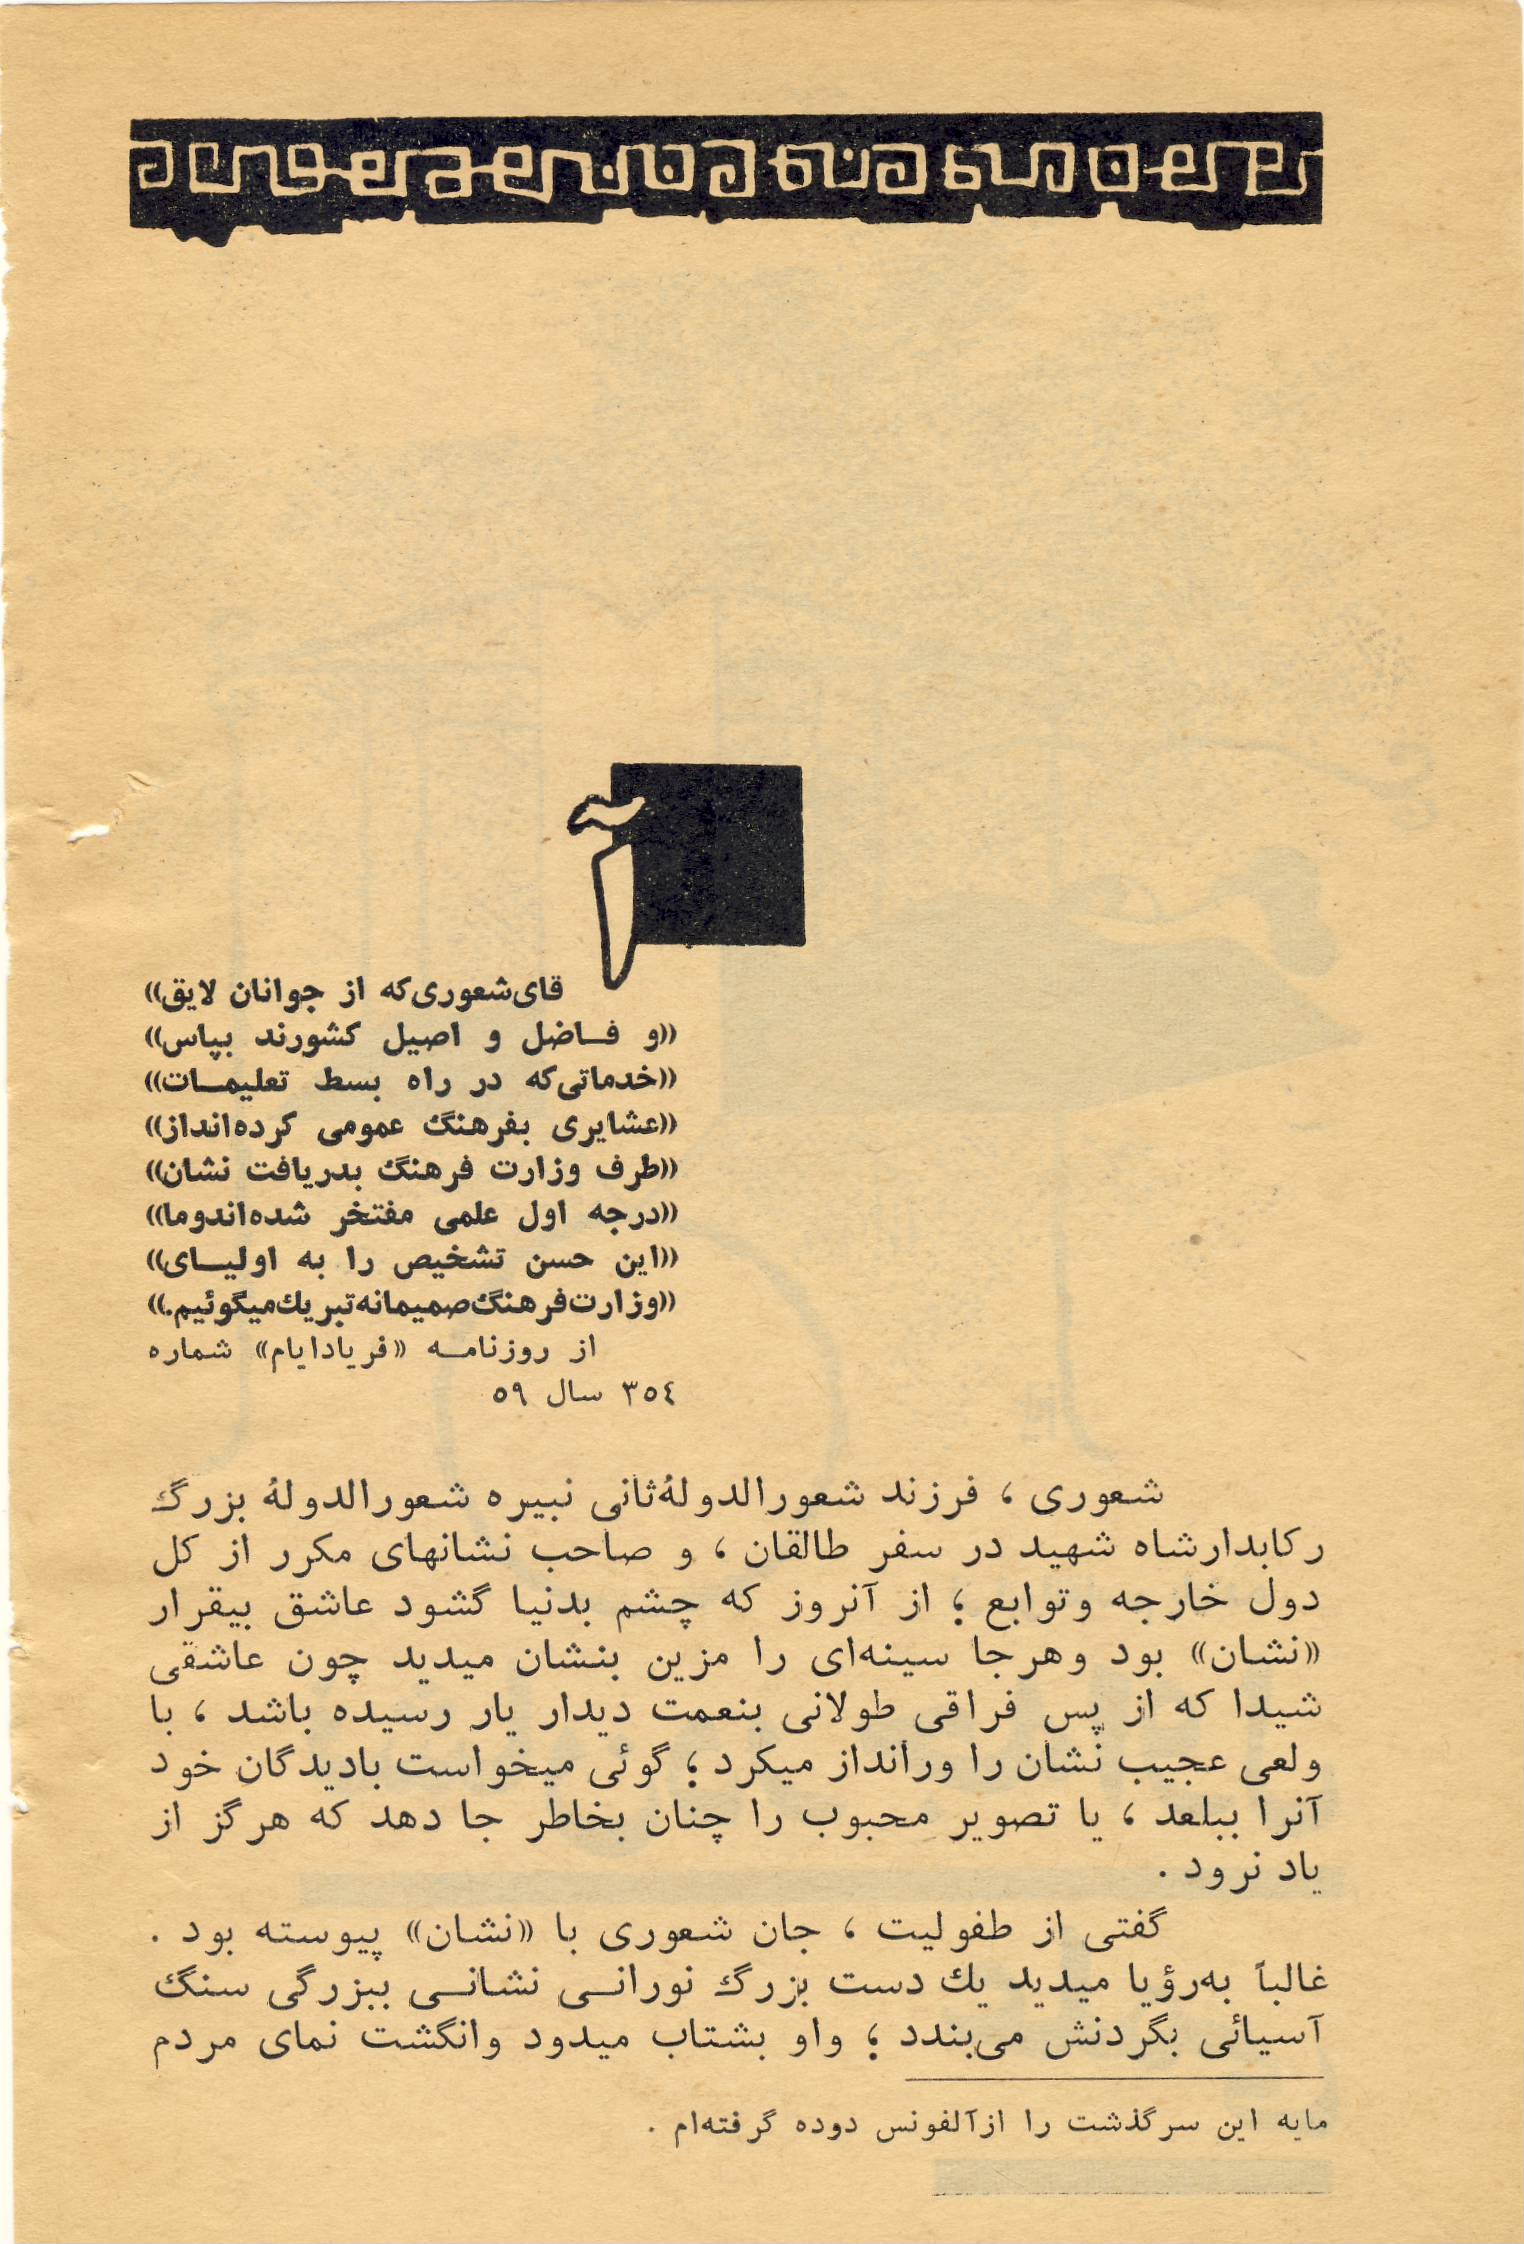 آقای‌شعوری‌که از جوانان لایق»
«و فــاضل و اصیل کشورند بپاس»
«خدماتی‌که در راه بسط تعلیمــات»
«عشایری بفرهنگ عمومی کرده‌انداز»
«طرف وزارت فرهنگ بدریافت نشان»
«درجه اول علمی مفتخر شده‌اندوما»
«این حسن تشخیص را به اولیــای»
«وزارت‌فرهنگ‌صمیمانه‌تبریك‌میگوئیم.»
از روزنامــه «فریادایام» شماره
٣٥٤ سال ٥٩
شعوری ، فرزند شعورالدولهٔ‌ثانی نبیره شعورالدولهٔ بزرگ
رکابدارشاه شهید در سفر طالقان ، و صاحب نشانهای مکرر از کل
دول خارجه وتوابع ؛ از آنروز که چشم بدنیا گشود عاشق بیقرار
«نشان» بود وهرجا سینه‌ای را مزین بنشان میدید چون عاشقی
شیدا که از پس فراقی طولانی بنعمت دیدار یار رسیده باشد ، با
ولعی عجیب نشان را ورانداز میکرد ؛ گوئی میخواست بادیدگان خود
آنرا ببلعد ، یا تصویر محبوب را چنان بخاطر جا دهد که هرگز از
یاد نرود .
گفتی از طفولیت ، جان شعوری با «نشان» پیوسته بود .
غالباً به‌رؤیا میدید یك دست بزرگ نورانــی نشانــی ببزرگی سنگ
آسیائی بگردنش می‌بندد ؛ واو بشتاب میدود وانگشت نمای مردم
مایه این سرگذشت را ازآلفونس دوده گرفته‌ام .